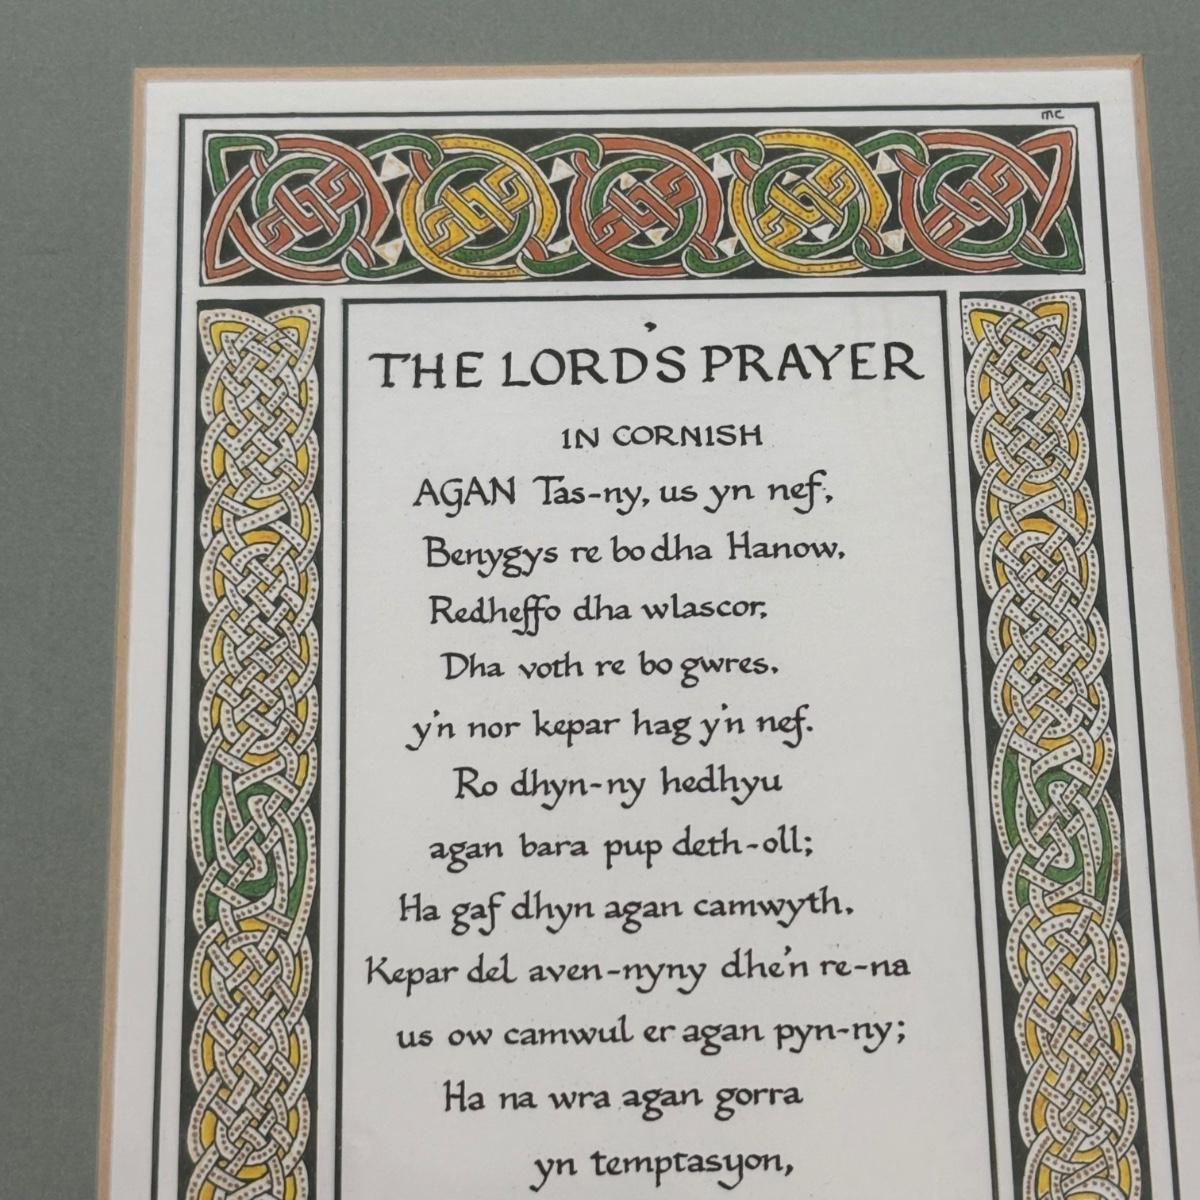 mc
THE LORD'S PRAYER
IN CORNISH
AGAN Tas-ny, us yn nef,
Benygys re bo dha Hanow,
Redheffo dha wlascor,
Dha voth re bo gwres,
y'n nor kepar hag y'n nef.
Ro dhyn-ny hedhyu
agan bara pup deth-oll;
Ha gaf dhyn agan camwyth,
Kepar del aven-nyny dhe'n re-na
us ow camwul er agan pyn-ny;
Ha na wra agan gorra
yn temptasyon,